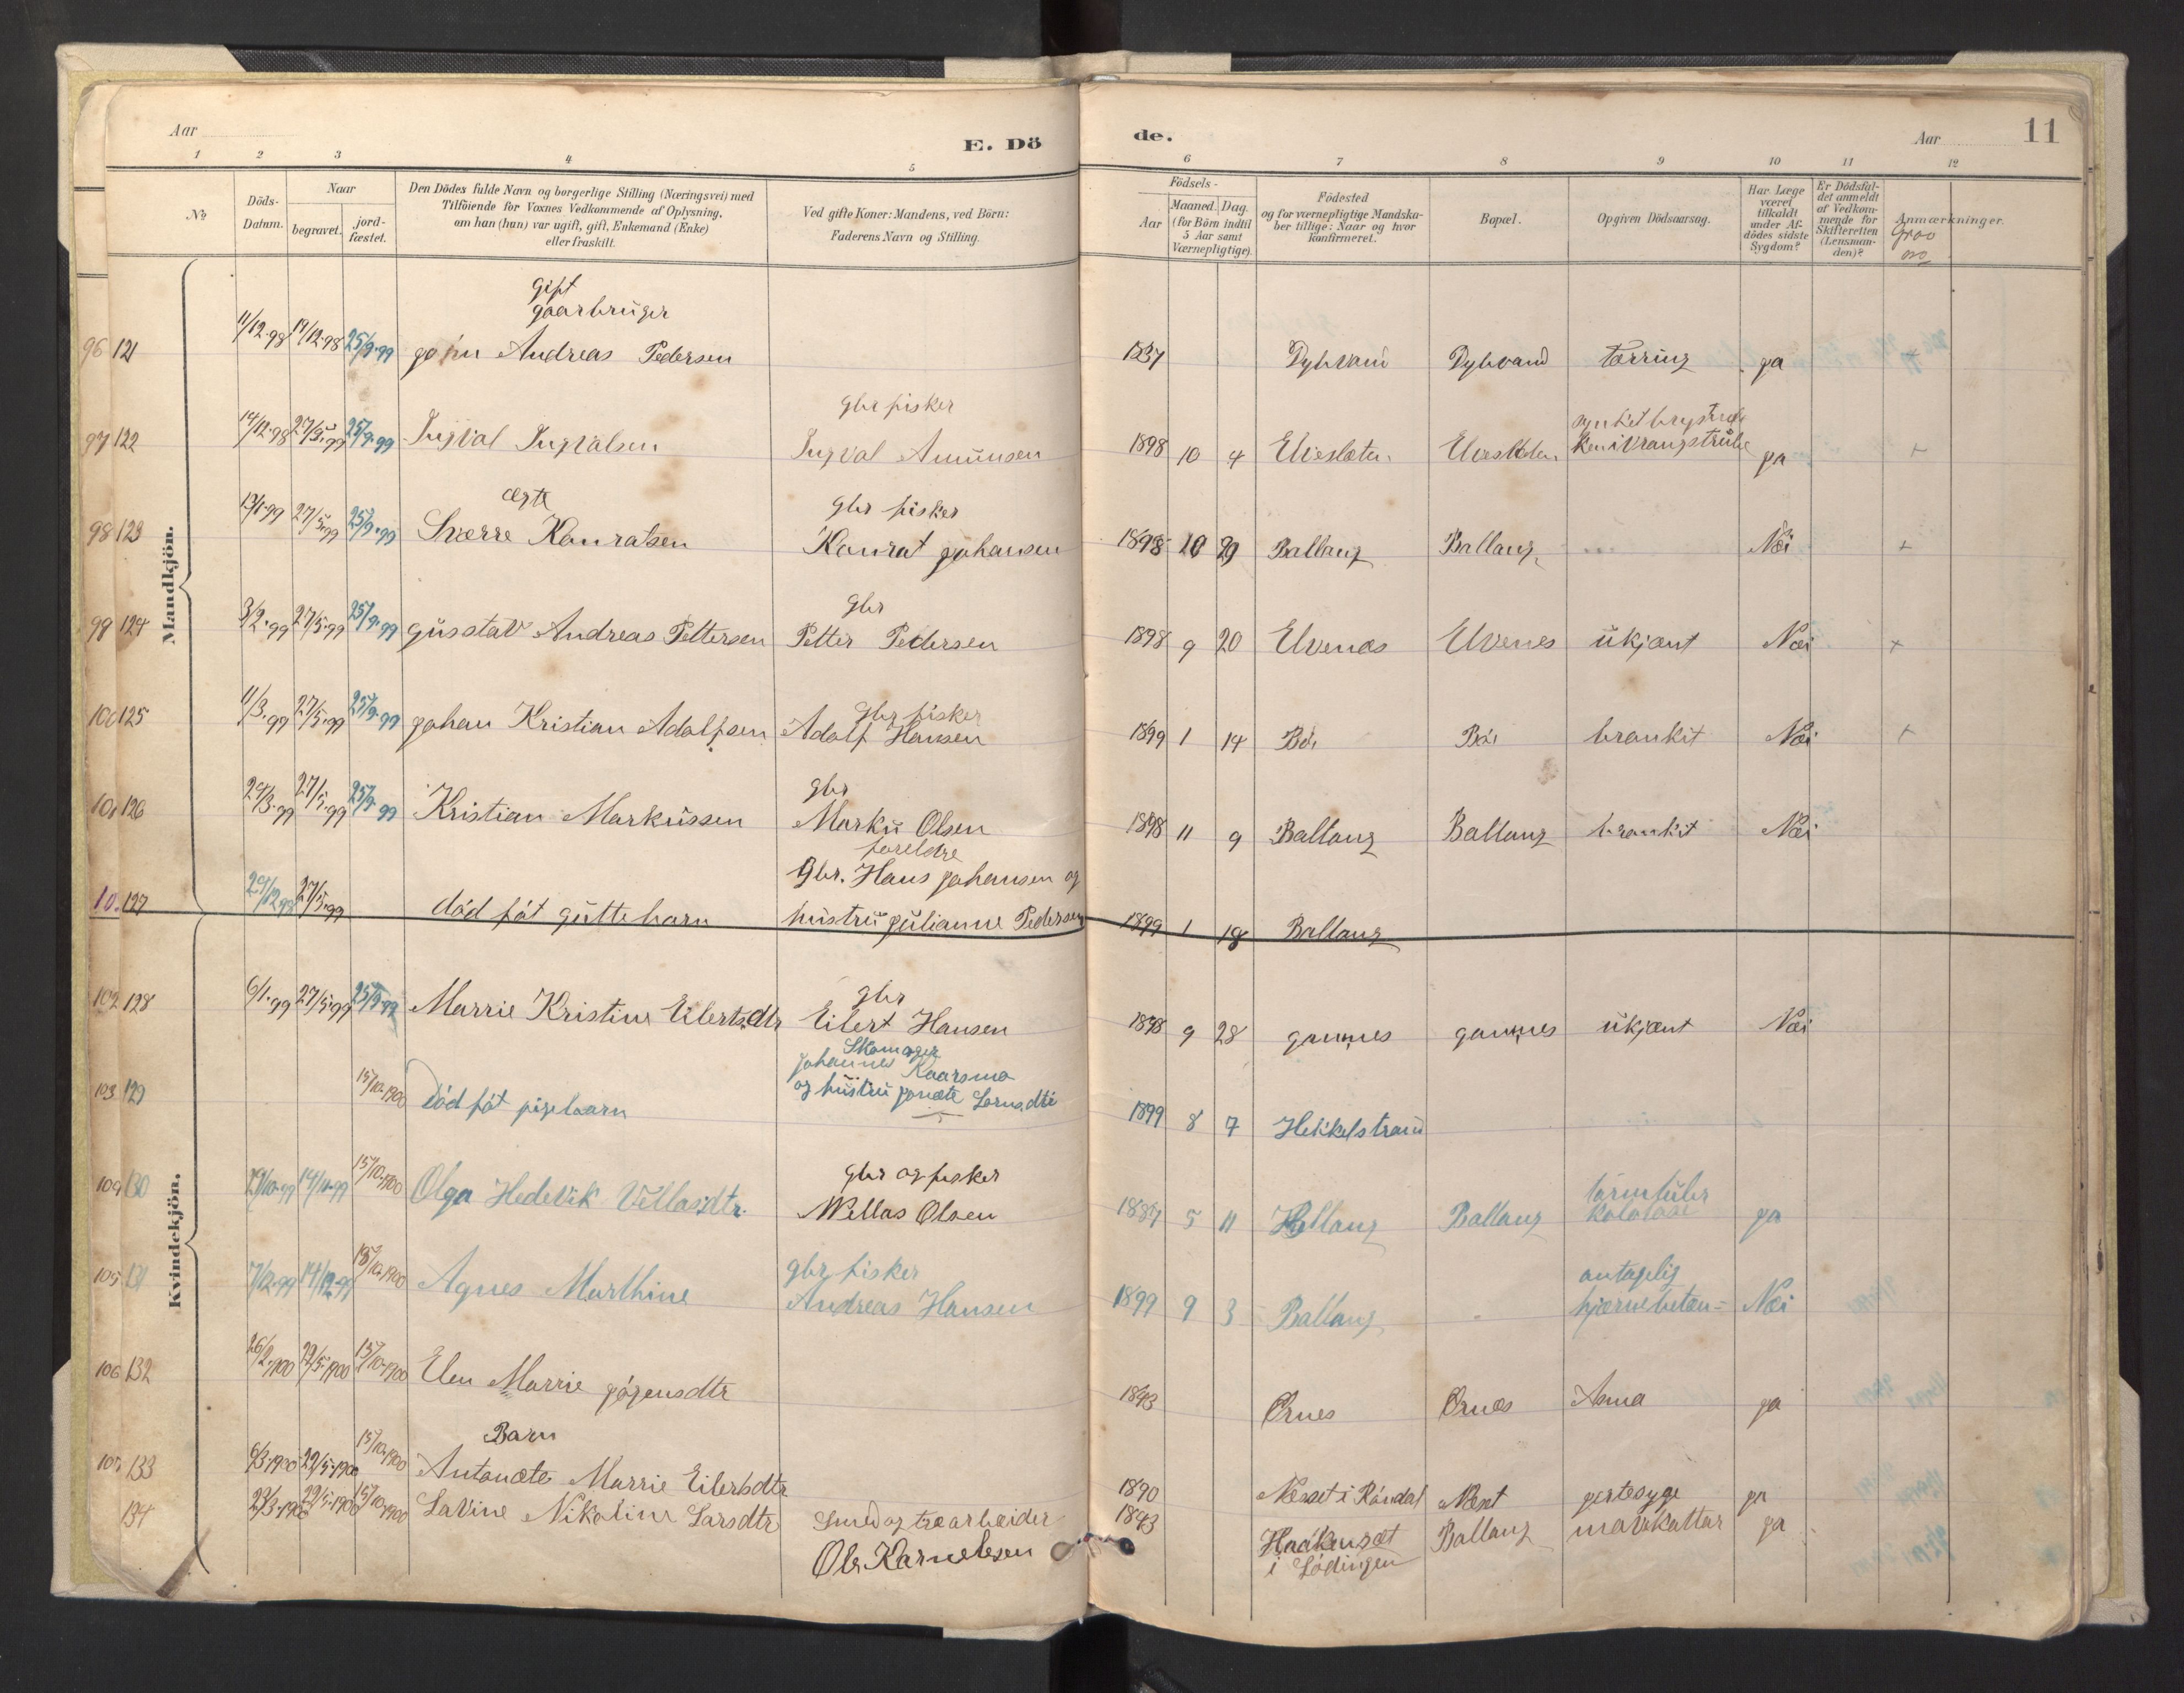 Aar
E. Dö
de.
Aar
11
1 2 3 4 5 6 7 8 9 10 11 12
№
Döds-
Datum.
Naar
begravet.
jord-
fæstet.
Den Dödes fulde Navn og borgerlige Stilling (Næringsvei) med
Tilföiende for Voxnes Vedkommende af Oplysning,
om han (hun) var ugift, gift, Enkemand (Enke)
eller fraskilt.
Ved gifte Koner: Mandens, ved Börn:
Faderens Navn og Stilling.
Födsels-
Aar
Maaned. Dag.
(for Börn indtil
5 Aar samt
Værnepligtige).
Födested
og for værnepligtige Mandska-
ber tillige: Naar og hvor
konfirmeret.
Bopæl.
Opgiven Dödsaarsag.
Har Læge
været
tilkaldt
under Af-
dödes sidste
Sygdom?
Er Dödsfal-
det anmeldt
af Vedkom-
mende for
Skifteretten
(Lensman-
den)?
Anmærkninger.
Mandkjön.
gift
gaarbruger
96 121 11/12-98 19/12-98 25/9-99 john Andreas Pedersen 1837 Dybvand Dybvand Tærring ja +
gbr fisker
97 122 14/12-98 27/5-99 25/9-99 Ingval Ingvalsen Ingval Amunsen 1898 10 4 ja +
ægte gbr fisker
98 123 13/1-99 27/5-99 25/9-99 Sverre Konratsen Konrat johansen 1898 10 29 Ballang Ballang Næi +
gbr
99 124 3/2-99 27/5-99 25/9-99 gusstav Andreas Pettersen Petter Pedersen 1898 9 20 Elvenæs Elvenes ukjænt Næi +
gbr fisker
100 125 11/3-99 27/5-99 25/9-99 johan Kristian Adolfsen Adolf Hansen 1899 1 14 Bøi Bøi brankit Næi +
gbr
101 126 29/3-99 27/5-99 25/9-99 Kristian Markussen Marku Olsen 1898 11 9 Ballang Ballang brankit Næi
foreldre
gbr. Hans johansen og
10. 127 29/12-98 27/5-99 død føt guttebarn hustru julianne Pedersen 1899 1 18 Ballang
Kvindekjön.
gbr
102 128 6/1-99 27/5-99 25/9-99 Marrie Kristine Eilertsdtr Eilert Hansen 1898 9 28 gannes gannes ukjænt Næi
Skomager
johannes Kaarsmo
og hustru jonæte Larnsdtr
103 129 15/10-1900 død føt pigebarn 1899 8 7 Hekkelstrand
gbr og fisker
104 130 29/10-99 14/11-99 15/10-1900 Olga Hedevik Vellasdtr. Wellas Olsen 1889 5 11 Ballang Ballang ja
gbr fisker antagelig
105 131 7/12-99 14/12-99 15/10-1900 Agnes Marthine Andreas Hansen 1899 9 3 Ballang hjærnebetæn= Næi
106 132 26/2-1900 22/5-1900 15/10-1900 Elen Marrie jørgensdtr 1843 Ørnes Ørnæs Asma ja
Barn
107 133 6/3-1900 22/5-1900 15/10-1900 Antonæte Marrie Eilertsdtr 1890 Næsset i Rándal Næset jertesyge ja
134 29/3-1900 22/5-1900 15/10-1900 Lavine Nikoline Larsdtr Smed og træarbeider 1843 Ballang mavekattar ja
Ole Karnelesen i Lødingen